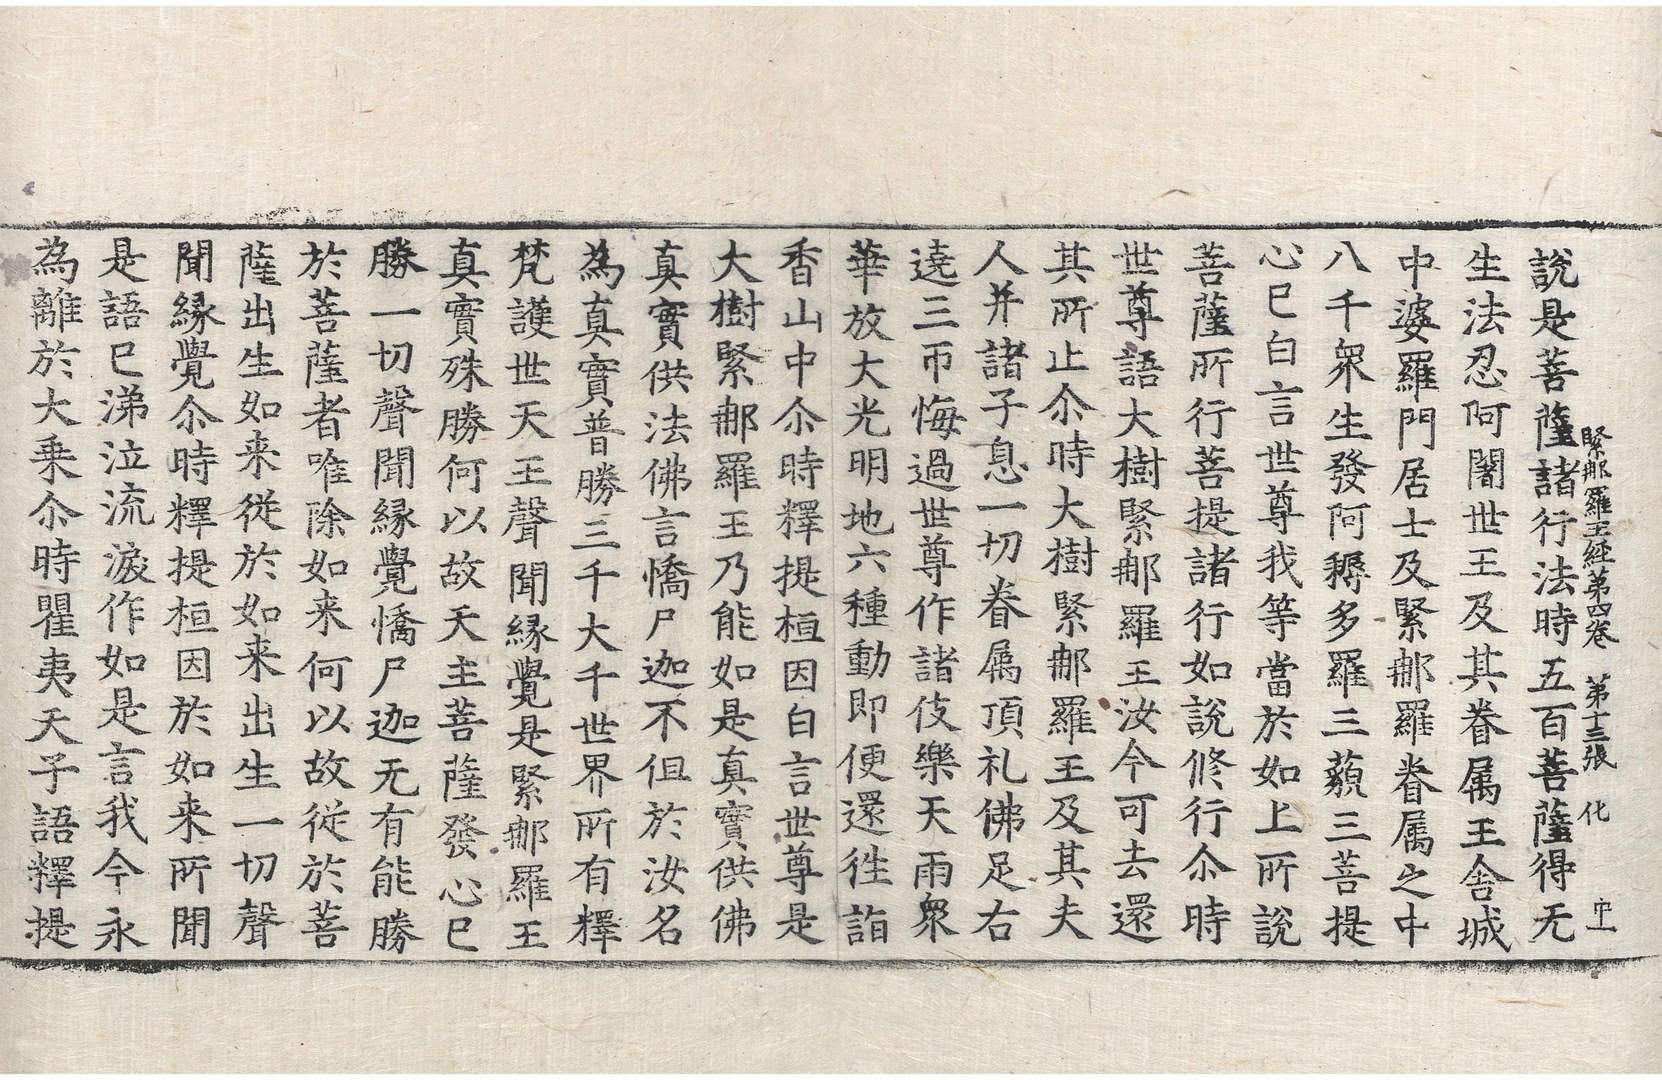 緊那羅王經第四卷　第十三張　化
說是菩薩諸行法時五百菩薩得无
生法忍阿闍世王及其眷属王舍城
中婆羅門居士及緊那羅眷属之中
八千衆生發阿耨多羅三藐三菩提
心已白言世尊我等當於如上所說
菩薩所行菩提諸行如說修行尒時
世尊語大樹緊那羅王汝今可去還
其所止尒時大樹緊那羅王及其夫
人并諸子息一切眷属頂礼佛足右
遶三帀悔過世尊作諸伎樂天雨衆
華放大光明地六種動即便還徃詣
香山中尒時釋提桓因白言世尊是
大樹緊那羅王乃能如是真實供佛
真實供法佛言憍尸迦不但於汝名
為真實普勝三千大千世界所有釋
梵護世天王聲聞縁覺是緊那羅王
真實殊勝何以故天主菩薩發心已
勝一切聲聞縁覺憍尸迦无有能勝
於菩薩者唯除如来何以故従於菩
薩出生如来従於如来出生一切聲
聞縁覺尒時釋提桓因於如来所聞
是語已涕泣流淚作如是言我今永
為離於大乗尒時瞿夷天子語釋提